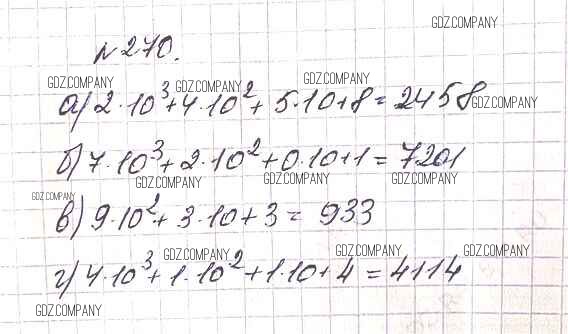 GDZ.COMPANY
№270.
GDZ.COMPANY GDZ.COMPANY GDZ.COMPANY
а) 2·10³+4·10²+5·10+8=2458
GDZ.COMPANY
б) 7·10³+2·10²+0·10+1=7201
GDZ.COMPANY GDZ.COMPANY GDZ.COMPANY
GDZ.COMPANY
в) 9·10²+3·10+3=933
GDZ.COMPANY GDZ.COMPANY GDZ.COMPANY
г) 4·10³+1·10²+1·10+4=4114
GDZ.COMPANY